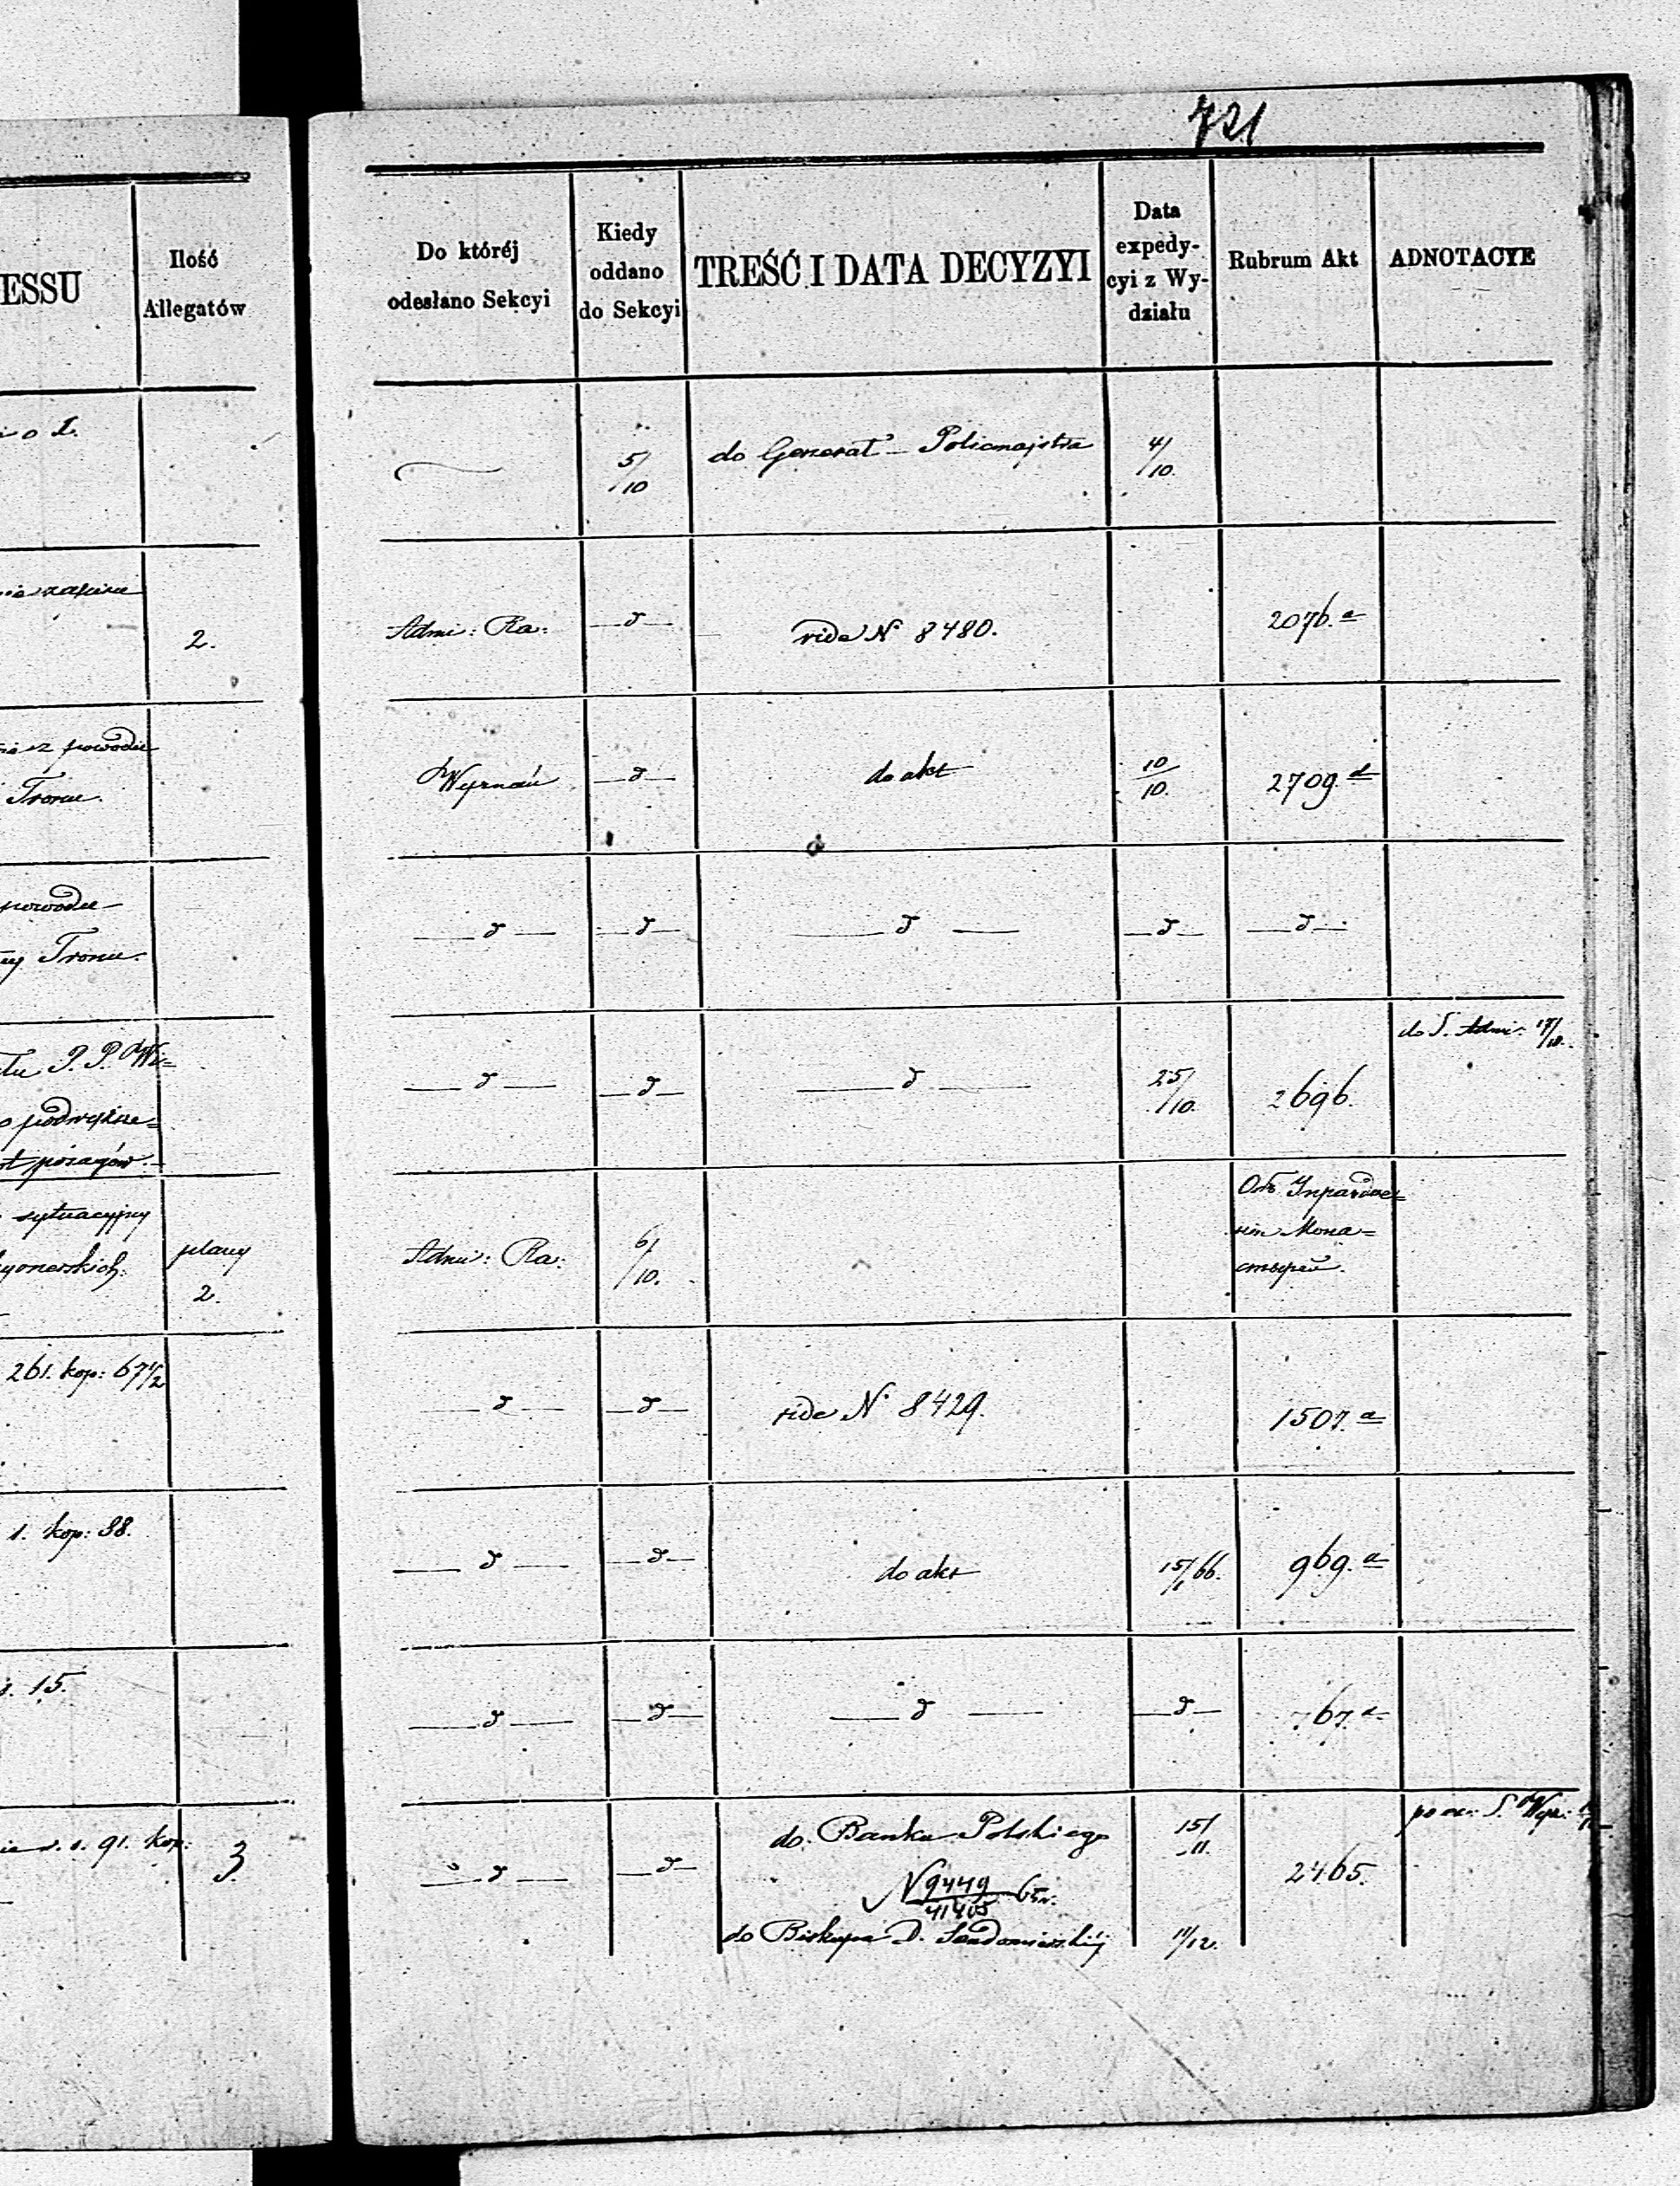 721
ESSU
Ilość
Allegatów
Do któréj
odesłano Sekcyi
Kiedy
oddano
do Sekcyi
TREŚĆ I DATA DECYZYI
Data
expedy-
cyi z Wy-
działu
Rubrum Akt
ADNOTACYE
5/10
do Generał-Policmajstra
4/10.
2.
Admi: Ra:
—d—
vide N 8480.
2076.a
z powodu
Tronu.
Wyznań
—d—
do akt
10/10.
2709.d
powodu
Tronu.
—d—
—d—
—d—
—d—
—d—
do S. Admi:
P. P. Wi=
podwyższe=
posagów.
—d—
—d—
—d—
25/10.
2696.
sytuacyjny
plany
2.
Admi: Ra:
6/10.
Объ Упраздне=
нiи Мона=
стырей.
261. kop: 67 1/2
—d—
—d—
vide N 8429.
1507.a
1. kop: 38.
—d—
—d—
do akt
15/1 66.
969.a
15.
—d—
—d—
—d—
—d—
767.a
91. kop:
3.
—d—
—d—
do Banku Polskiego
15/11.
2465.
N 9449/41405
do Biskupa D. Sandomierskiéj
11/12.